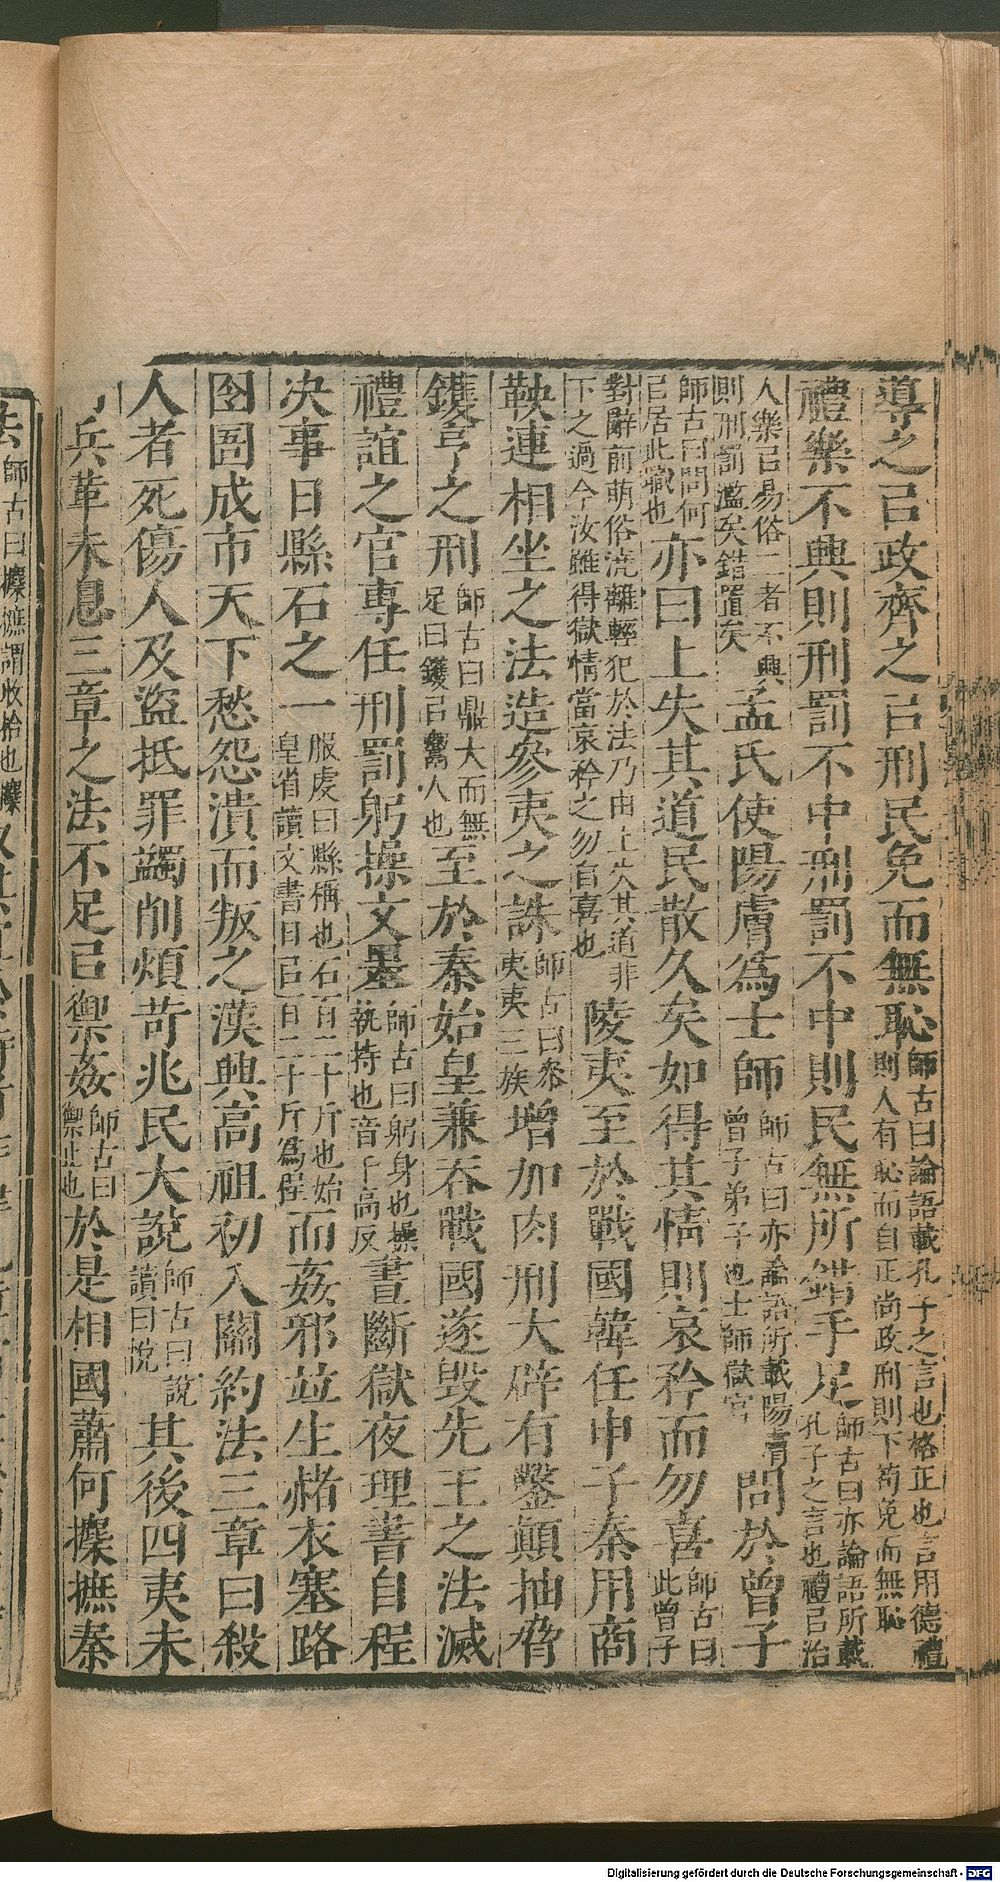 導之㠯政齊之㠯刑民免而無恥師古曰論語載孔子之言也格正也言用德禮則人有恥而自正尚政刑則下苟免而無恥
禮樂不興則刑罰不中刑罰不中則民無所錯手足師古曰亦論語所載孔子之言也禮㠯治
人樂㠯易俗二者不興則刑罰濫矣錯置矣孟氏使陽膚爲士師師古曰亦論語所載陽膚曾子弟子也士師獄官問於曾子
師古曰問何㠯居此職也亦曰上失其道民散久矣如得其情則哀矜而勿喜師古曰此曾子
對辭前萌俗澆離輕犯於法乃由上失其道非下之過今汝雖得獄情當哀矜之勿自喜也陵夷至於戰國韓任申子秦用商
鞅連相坐之法造參夷之誅師古曰參夷夷三族增加肉刑大辟有鑿顛抽脅
鑊亨之刑師古曰鼎大而無足曰鑊㠯鬻人也至於秦始皇兼吞戰國遂毀先王之法滅
禮誼之官專任刑罰躬操文墨師古曰躬身也操執持也音千高反晝斷獄夜理書自程
决事日縣石之一服虔曰縣稱也石百二十斤也始皇省讀文書日㠯百二十斤爲程而姦邪並生赭衣塞路
囹圄成市天下愁怨潰而叛之漢興高祖初入關約法三章曰殺
人者死傷人及盜抵罪蠲削煩苛兆民大說師古曰說讀曰悅其後四夷未
兵革未息三章之法不足㠯禦姦師古曰禦止也於是相國蕭何攈摭秦
法師古曰攈摭謂收拾也攈